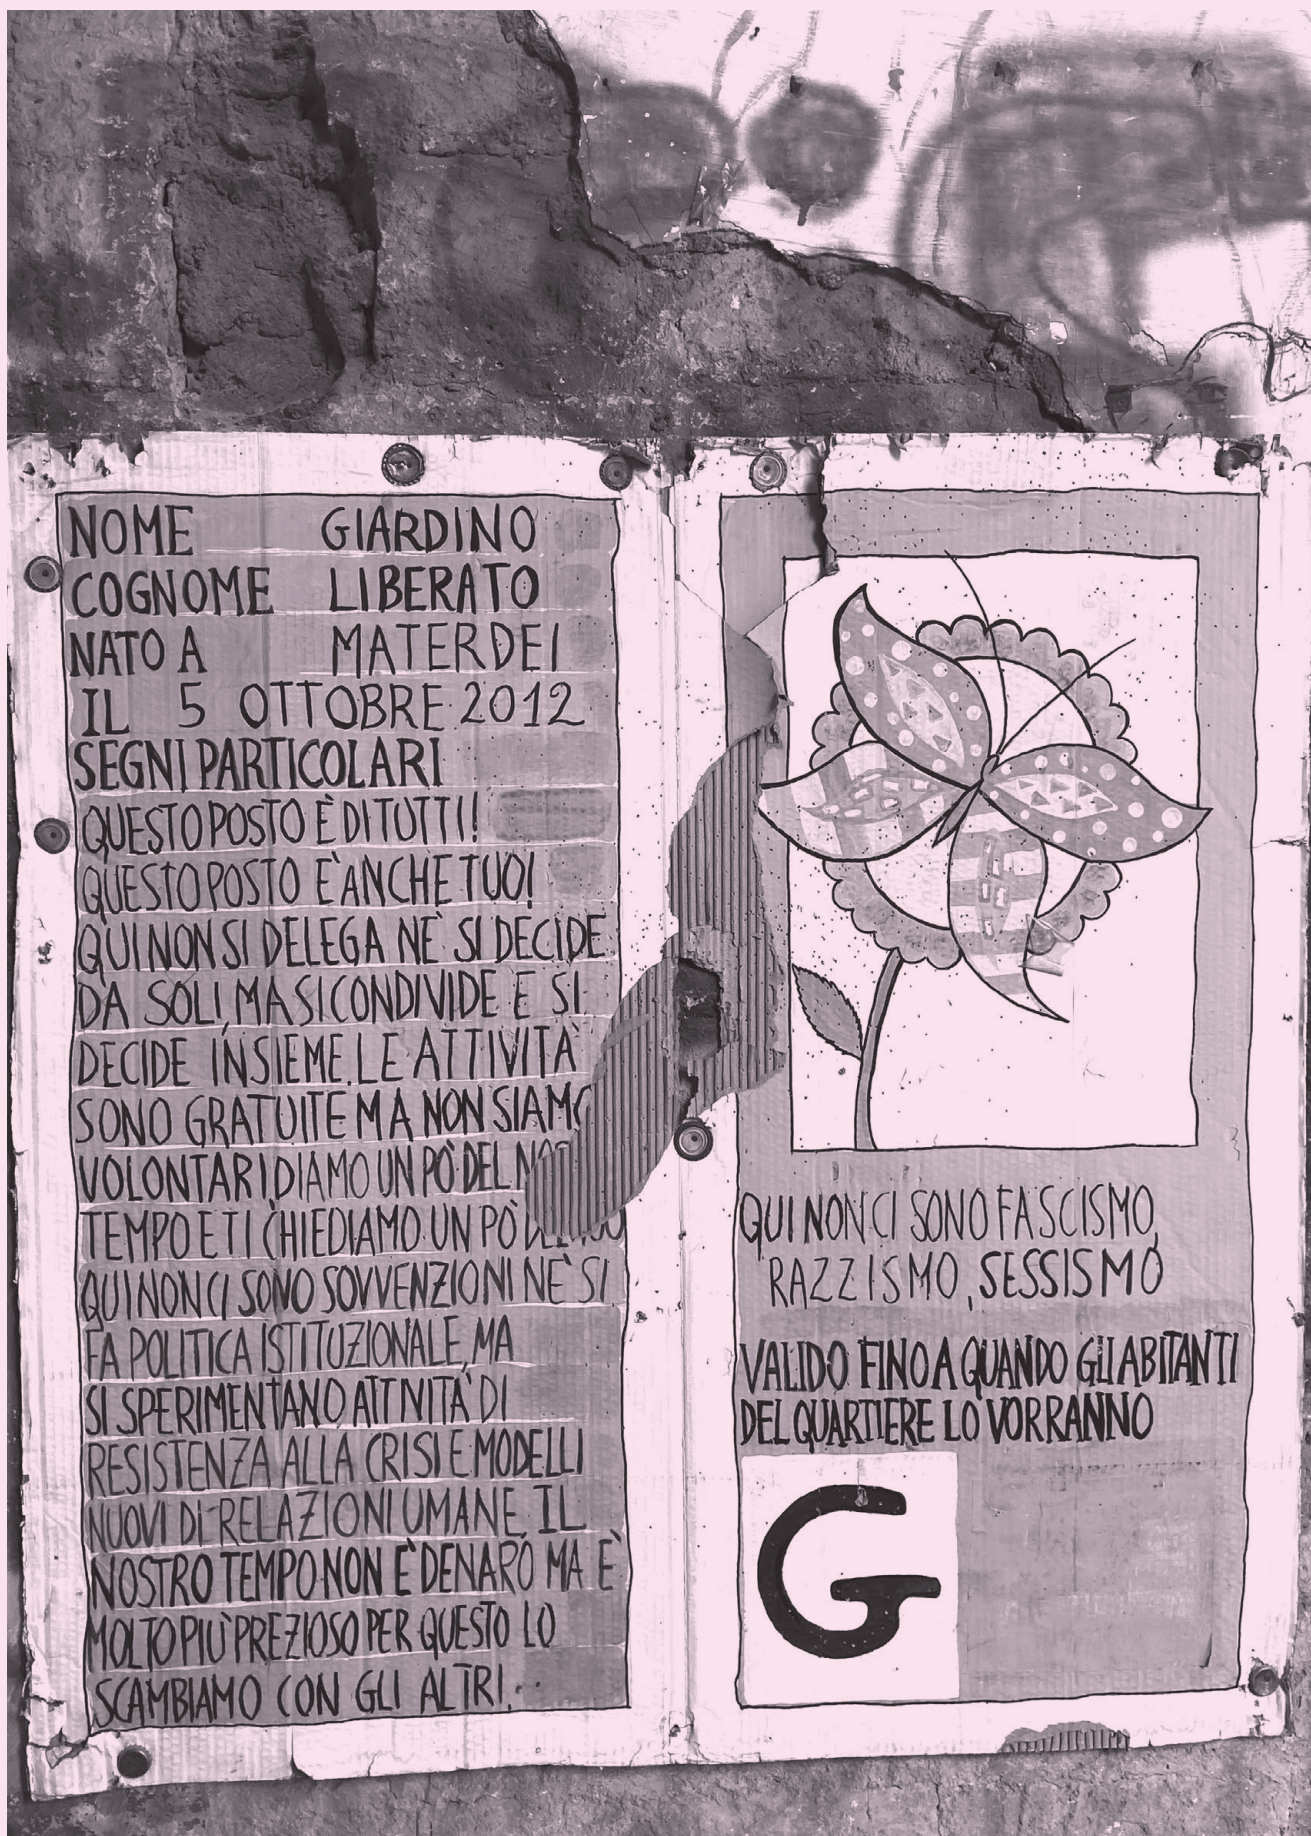 NOME GIARDINO
COGNOME LIBERATO
NATO A MATERDEI
IL 5 OTTOBRE 2012
SEGNI PARTICOLARI
QUESTO POSTO È DI TUTTI!
QUESTO POSTO È ANCHE TUO!
QUI NON SI DELEGA NÈ SI DECIDE
DA SOLI, MA SI CONDIVIDE E SI
DECIDE INSIEME. LE ATTIVITÀ
SONO GRATUITE MA NON SIAMO
VOLONTARI DIAMO UN PÒ DEL
TEMPO E TI CHIEDIAMO UN PÒ
QUI NON CI SONO SOVVENZIONI NÈ SI
FA POLITICA ISTITUZIONALE, MA
SI SPERIMENTANO ATTIVITÀ DI
RESISTENZA ALLA CRISI E MODELLI
NUOVI DI RELAZIONI UMANE. IL
NOSTRO TEMPO NON È DENARO MA È
MOLTO PIÙ PREZIOSO PER QUESTO LO
SCAMBIAMO CON GLI ALTRI...
QUI NON CI SONO FASCISMO,
RAZZISMO, SESSISMO
VALIDO FINO A QUANDO GLI ABITANTI
DEL QUARTIERE LO VORRANNO
G